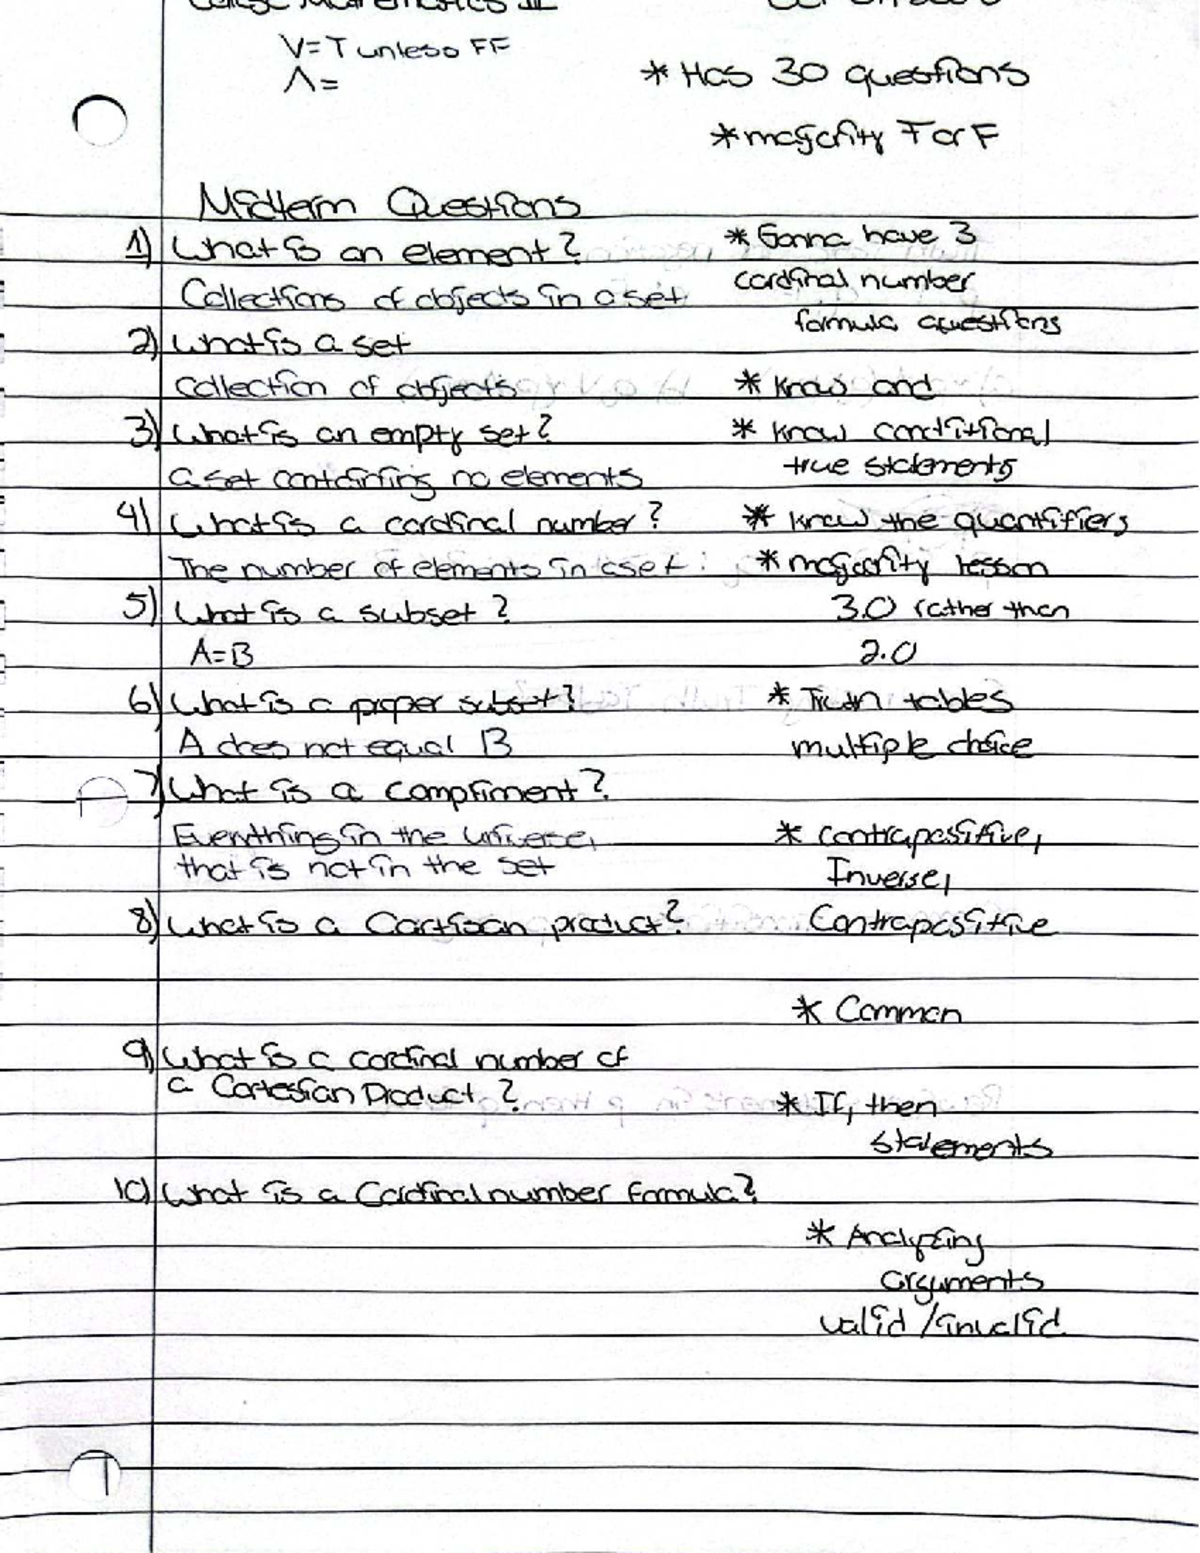 College Mathematics II
V=T unless FF
Λ=
* Has 30 questions
* majority T or F
Midterm Questions
1) What is an element?
* Gonna have 3
Collections of objects in a set
cardinal number
formula questions
2) What is a set
Collection of objects
* Know and
3) What is an empty set?
* Know conditional
true statements
a set containing no elements
4) What is a cardinal number?
* Know the quantifiers
The number of elements in a set
* majority lesson
5) What is a subset?
3.0 rather than
A=B
2.0
6) What is a proper subset?
* Truth tables
A does not equal B
multiple choice
7) What is a compliment?
Everything in the universe,
that is not in the set
* Contrapositive,
Inverse,
8) What is a Cartisan product?
Contrapositive
* Common
9) What is a cardinal number of
a Cartesian Product?
* If, then
statements
10) What is a Cardinal number formula?
* Analyzing
arguments
valid/invalid